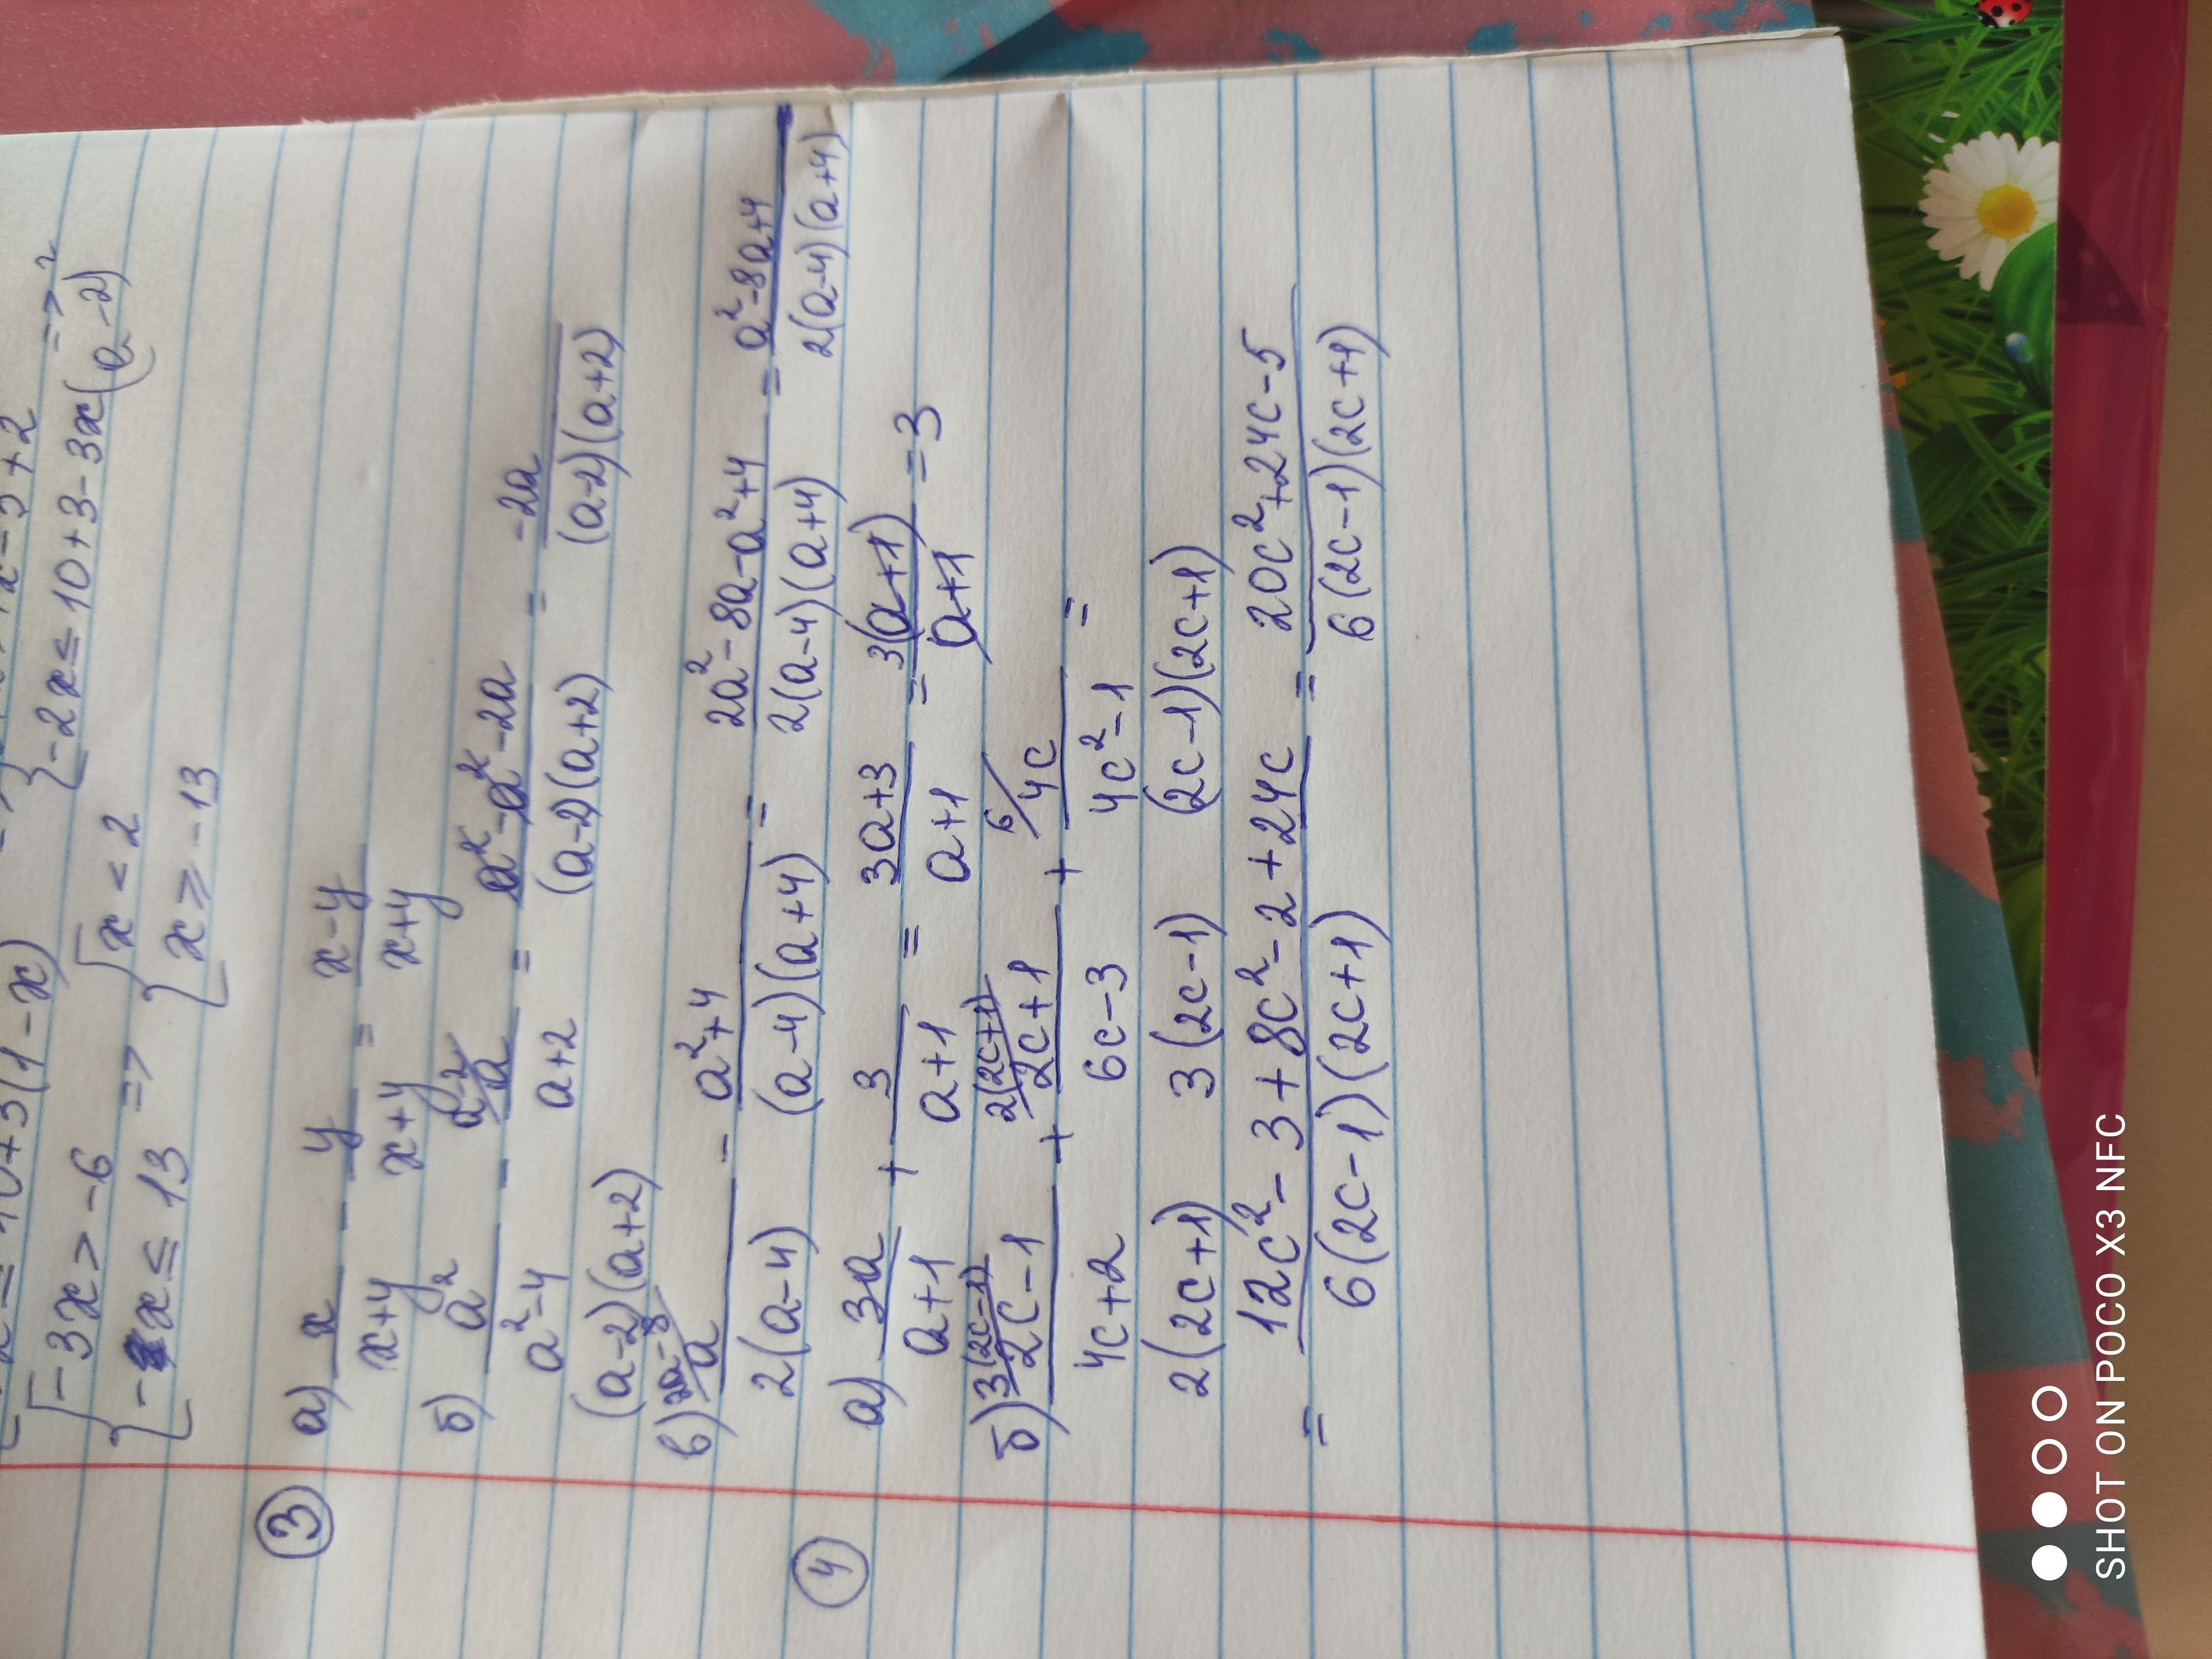 -2x ≤ 10+3-3x
{-3x > -6
{-x ≤ 13 => {x < 2
{x ≥ -13
③ а) x/(x+y) - y/(x+y) = (x-y)/(x+y)
б) a²/(a²-4) - a/(a+2) = (a²-a²-2a)/((a-2)(a+2)) = -2a/((a-2)(a+2))
(a-2)(a+2)
в) a/(2(a-4)) - (a²+4)/((a-4)(a+4)) = (2a²-8a-a²+4)/(2(a-4)(a+4)) = (a²-8a+4)/(2(a-4)(a+4))
④ а) 3a/(a+1) + 3/(a+1) = (3a+3)/(a+1) = 3(a+1)/(a+1) = 3
б) 3(2c-1) 2(2c+1) 6
(2c-1)/(4c+2) + (2c+1)/(6c-3) + 4c/(4c²-1) =
2(2c+1) 3(2c-1) (2c-1)(2c+1)
= (12c²-3+8c²-2+24c)/(6(2c-1)(2c+1)) = (20c²+24c-5)/(6(2c-1)(2c+1))
SHOT ON POCO X3 NFC